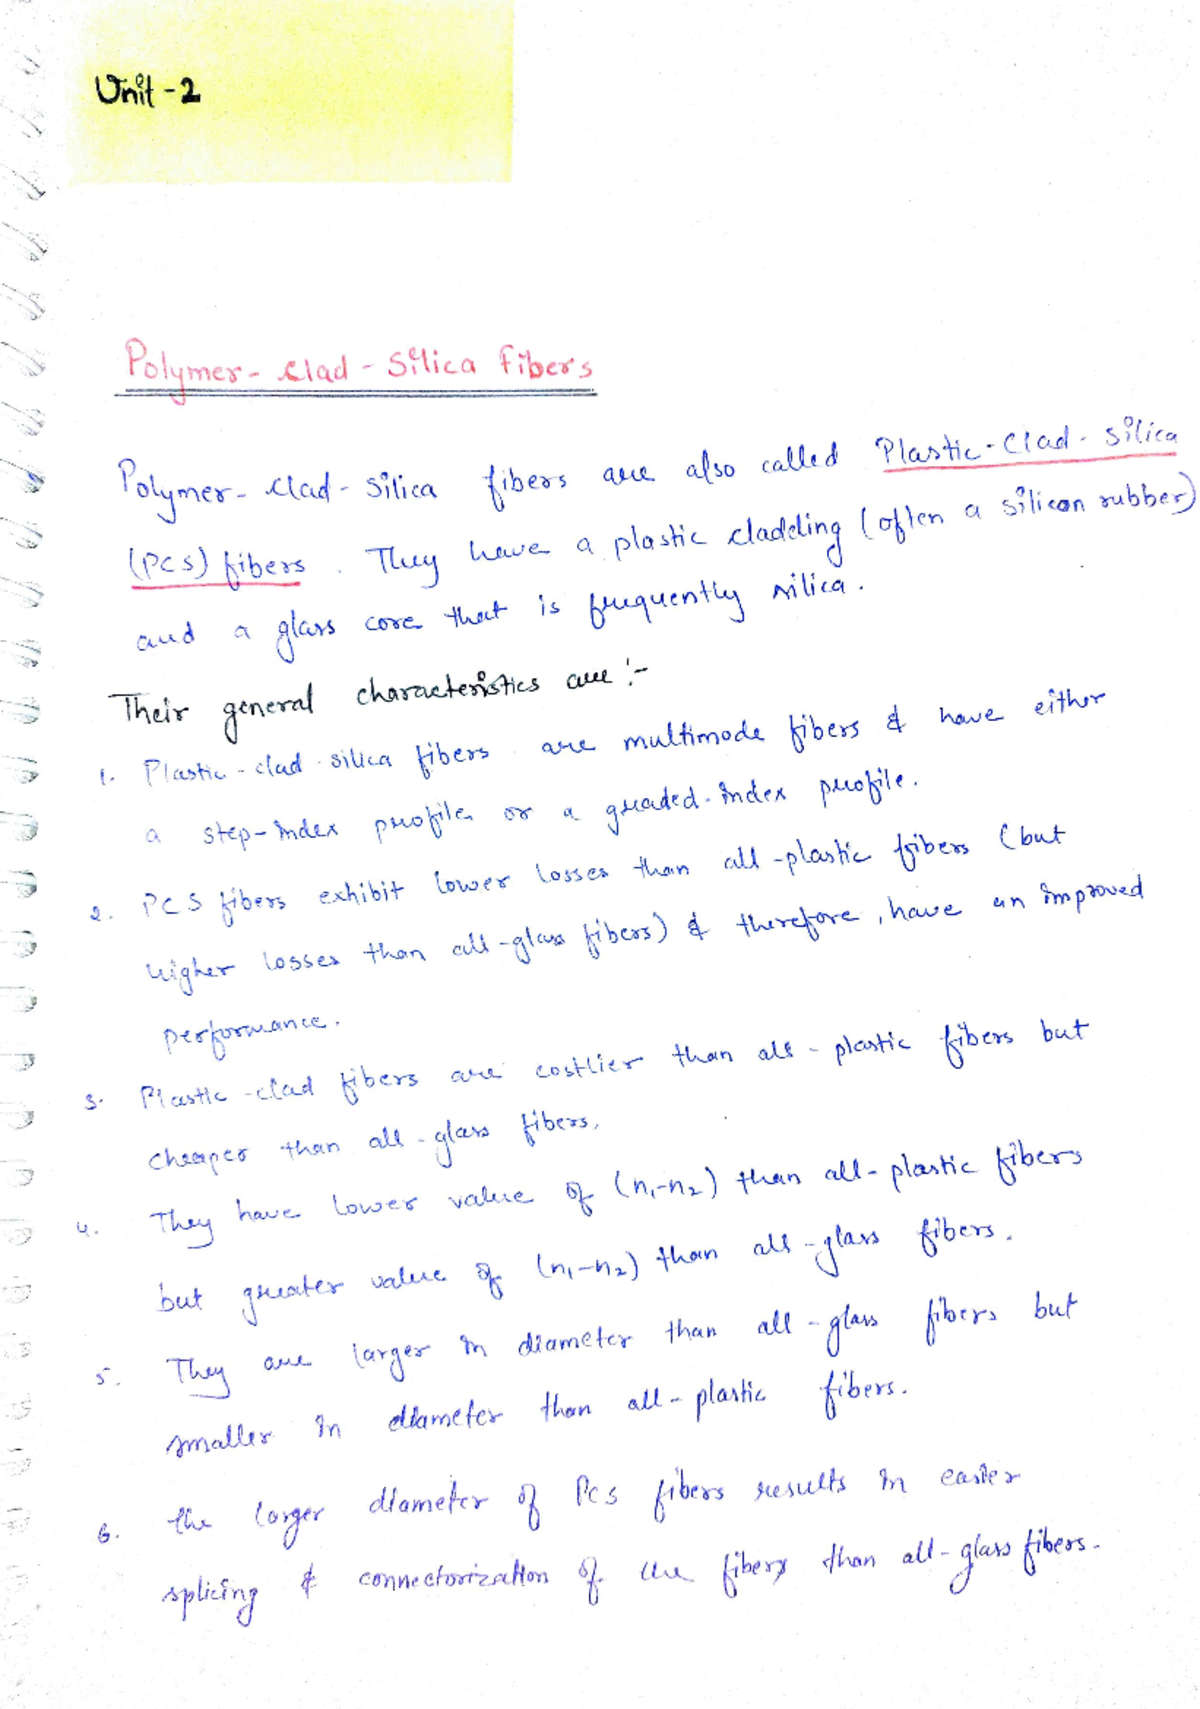 Unit-2
Polymer-Clad-Silica Fibers
Polymer-Clad-Silica fibers are also called Plastic-Clad-Silica
(PCS) fibers. They have a plastic cladding (often a silicon rubber)
and a glass core that is frequently silica.
Their general characteristics are :-
1. Plastic-clad-silica fibers are multimode fibers & have either
a step-index profile or a graded-index profile.
2. PCS fibers exhibit lower losses than all-plastic fibers (but
higher losses than all-glass fibers) & therefore, have an improved
performance.
3. Plastic-clad fibers are costlier than all-plastic fibers but
cheaper than all-glass fibers.
4. They have lower value of (n₁-n₂) than all-plastic fibers
but greater value of (n₁-n₂) than all-glass fibers.
5. They are larger in diameter than all-glass fibers but
smaller in diameter than all-plastic fibers.
6. the larger diameter of PCS fibers results in easier
splicing & connectorization of the fibers than all-glass fibers.